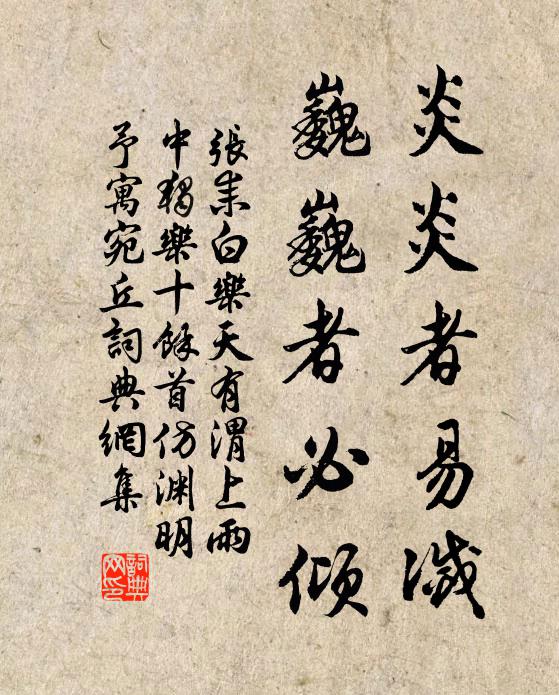 炎炎者易滅
巍巍者必傾
張耒白樂天有渭上雨
中獨樂十餘首仿淵明
予寓宛丘詞典網集
詞典
網印